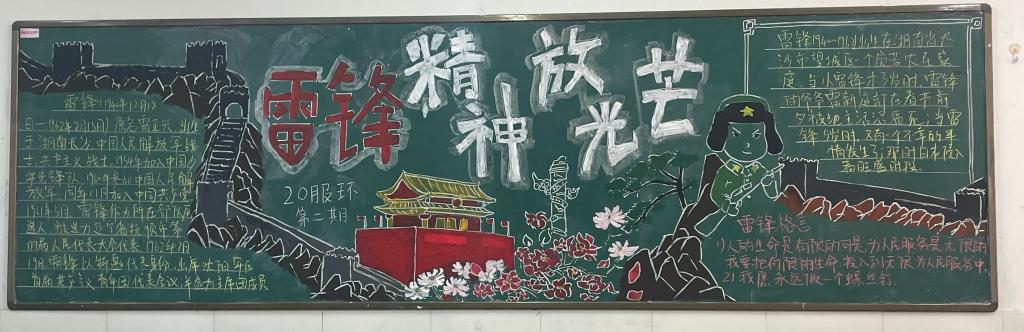 雷锋精神放光芒
20服环
第二期
雷锋(1940年12月18
日—1962年8月15日)原名雷正兴,出生
于湖南长沙,中国人民解放军战
士,共产主义战士,1954年加入中国少
年先锋队,1960年参加中国人民解
放军,同年11月加入中国共产党
1961年5月,雷锋作为所在部队候
选人,被选为辽宁省抚顺市第
四届人民代表大会代表,1962年2月
19日,雷锋以特邀代表身份,出席沈阳军区
首届共产主义青年团代表会议,并被选为主席团成员
雷锋1940—1962出生在湖南省长
沙市望城区一个贫苦农民家
庭,当小雷锋才3岁时,雷锋
的爷爷雷新庭就在春节前
夕被地主活活逼死;当雷
锋5岁时,又有一个不幸的事
情发生了;那时日本侵入
者旺盛时程.
雷锋格言
1)人的生命是有限的可是,为人民服务是无限的
我要把有限的生命,投入到无限为人民服务中.
2)我愿永远做一个螺丝钉.